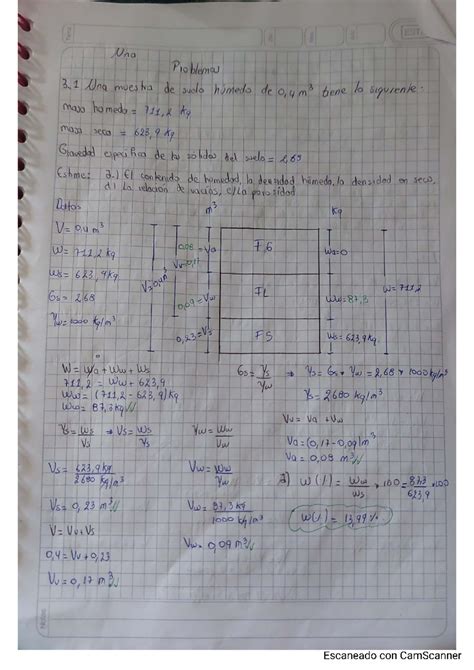 Uno
Problemas
3.1 Una muestra de suelo húmedo de 0,4 m³ tiene lo siguiente:
masa húmeda = 711,2 kg
masa seca = 623,9 kg
Gravedad específica de los sólidos del suelo = 2,68
Estime: a.) El contenido de humedad, la densidad húmeda, la densidad en seco,
d) La relación de vacíos, e) La porosidad
Datos
m³
kg
V = 0,4 m³
W = 711,2 kg
Ws = 623,9 kg
Gs = 2,68
γw = 1000 kg/m³
V = 0,4 m³
0,08 = Va
Vv = 0,17
0,09 = Vw
0,23 = Vs
F.G
FL
FS
Wa = 0
Ww = 87,3
Ws = 623,9 kg
W = 711,2
W = Wa + Ww + Ws
711,2 = Ww + 623,9
Ww = (711,2 - 623,9) kg
Ww = 87,3 kg
Gs = γs/γw ⇒ γs = Gs * γw = 2,68 * 1000 kg/m³
γs = 2680 kg/m³
γs = Ws/Vs ⇒ Vs = Ws/γs
γw = Ww/Vw
Vv = Va + Vw
Va = (0,17 - 0,09) m³
Va = 0,08 m³
Vs = 623,9 kg / 2680 kg/m³
Vw = Ww/γw
a) w(%) = Ww/Ws * 100 = 87,3/623,9 * 100
Vs = 0,23 m³
Vw = 87,3 kg / 1000 kg/m³
w(%) = 13,99 %
V = Vv + Vs
Vw = 0,09 m³
0,4 = Vv + 0,23
Vv = 0,17 m³
Escaneado con CamScanner